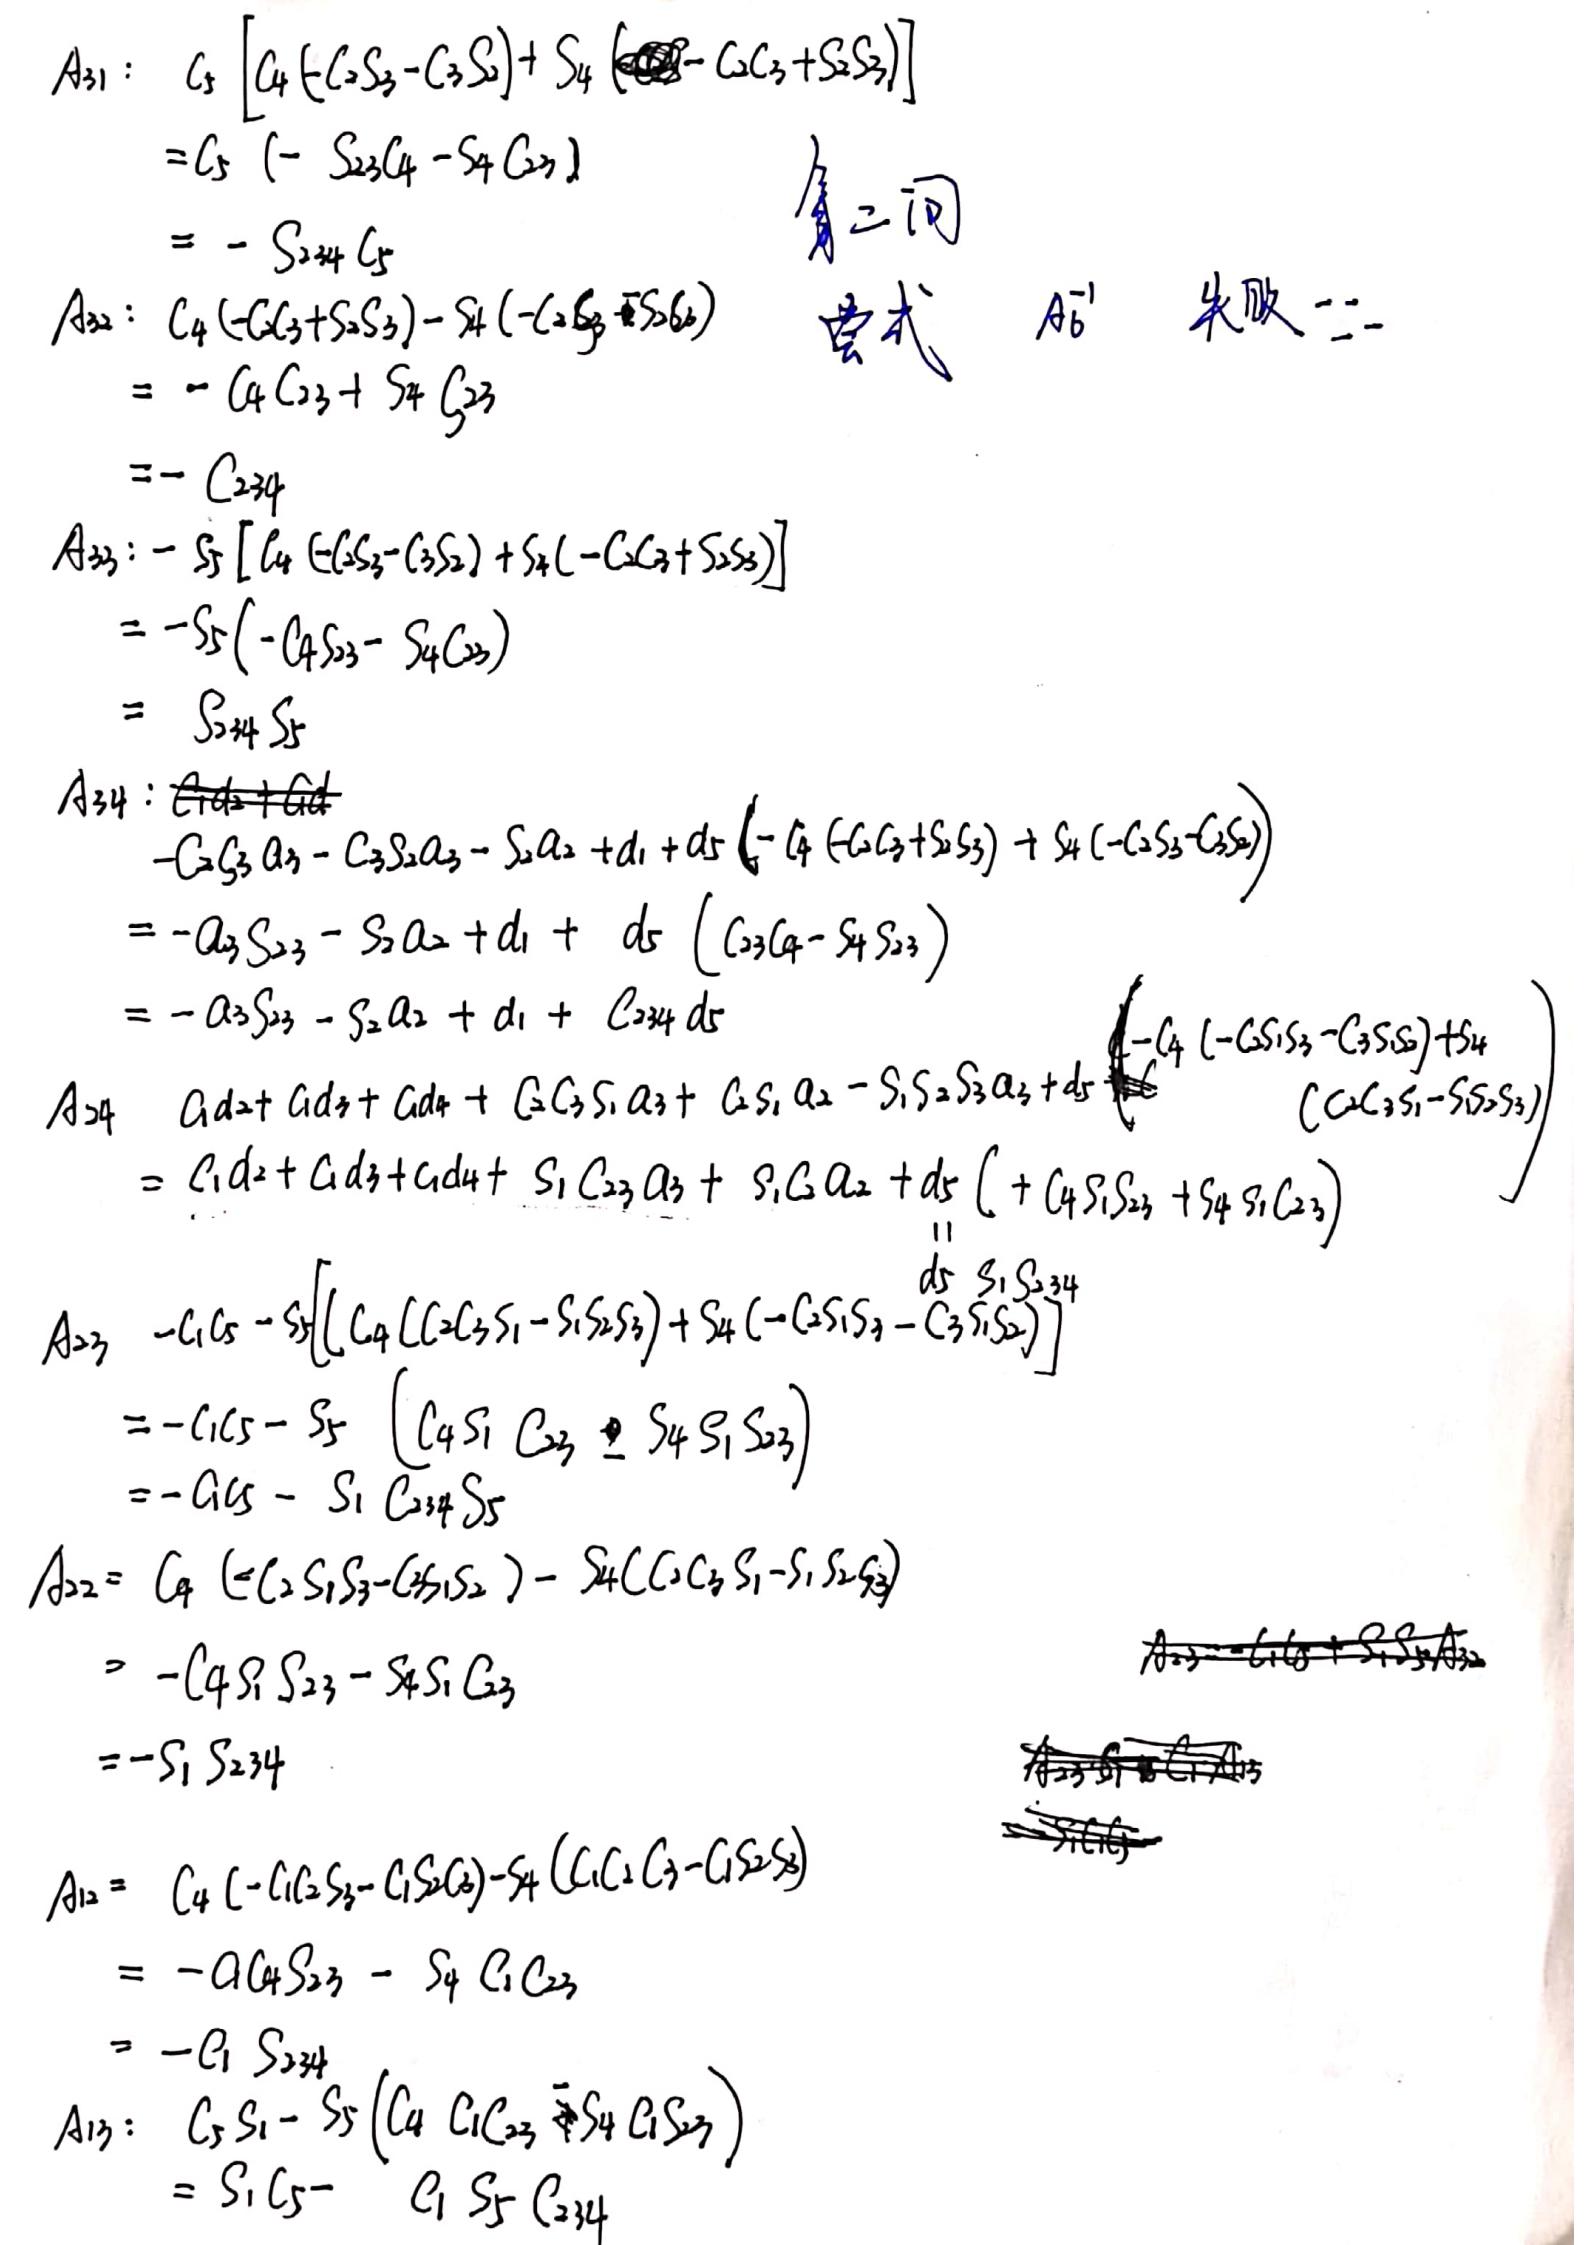 A31: C5 [C4 (-C2S3-C3S2)+ S4 (- C2C3+S2S3)]
=C5 (- S23C4 -S4 C23)
= - S234 C5
第二问
尝试 A6^-1 失败
A32: C4 (-C2C3+S2S3) - S4 (-C2S3-S2C3)
= - C4 C23 + S4 S23
=- C234
A33: - S5 [C4 (-C2S3-C3S2) + S4(-C2C3+S2S3)]
= -S5 (-C4S23- S4C23)
= S234 S5
A34:
-C2S3 a3 - C3S2a3 - S2a2 +d1 + d5 (- C4 (-C2C3+S2S3) + S4 (-C2S3-C3S2))
= -a3 S23 - S2 a2 + d1 + d5 (C23C4- S4 S23)
= - a3S23 - S2 a2 + d1 + C234 d5
A24 C1d2+ C1d3+ C1d4 + C2C3S1 a3 + C2S1 a2 - S1S2S3a3 + d5 (-C4 (-C2S1S3 -C3S1S2) + S4
(C2C3S1-S1S2S3))
= C1d2 + C1d3 + C1d4 + S1 C23 a3 + S1C2 a2 + d5 ( + C4S1S23 + S4 S1C23)
=
d5 S1S234
A23 -C1C5 - S5[(C4 (C2C3S1 - S1S2S3) + S4 (-C2S1S3 - C3S1S2)]
= -C1C5 - S5 (C4S1 C23 - S4 S1S23)
= -C1C5 - S1 C234S5
A22= C4 (-C2S1S3-C3S1S2) - S4(C2C3S1-S1S2S3)
= -C4S1S23 - S4S1C23
= -S1 S234
A12= C4 (-C1C2S3-C1S2C3)-S4 (C1C2C3-C1S2S3)
= -C1C4S23 - S4 C1C23
= -C1 S234
A13: C5S1- S5(C4 C1C23 - S4 C1S23)
= S1C5- C1 S5 C234